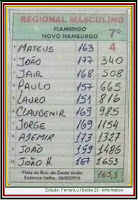 REGIONAL MASCULINO
FLAMENGO
NOVO HAMBURGO 7º
MATEUS 163 4
JOÃO 177 340
JAIR 168 508
PAULO 157 665
LAURO 151 816
CLAUDEMIR 169 985
JORGE 169 1154
ADEMIR 173 1327
JOÃO 159 1486
JOÃO H. 167 1653
Pista da Soc. de Canto União
Estância Velha,
165,3
Edição: FerrariLu / Bolão 23 - Informativo